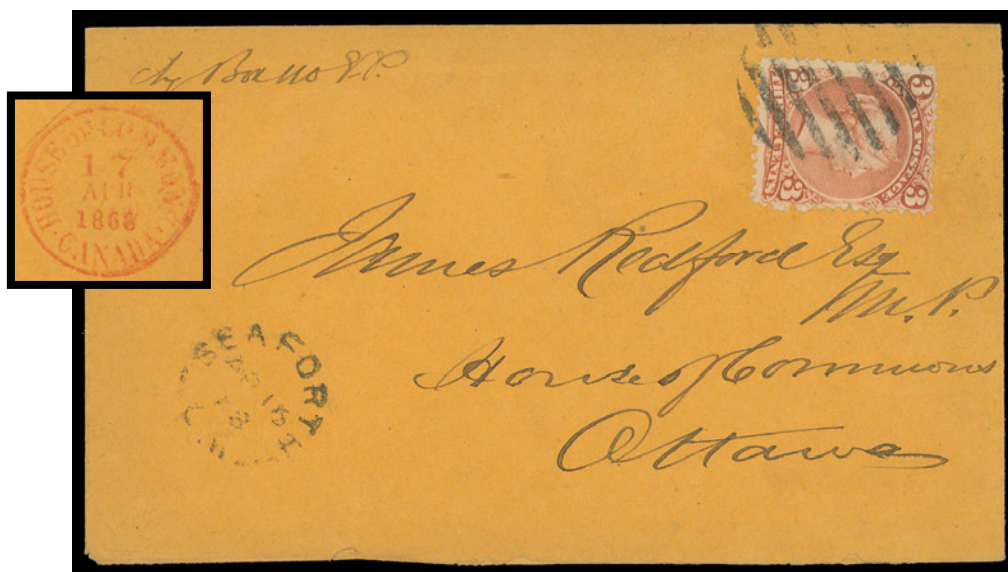 HOUSE OF COMMONS
17
1868
CANADA
3
3
3
3
James Redford Esq
M.P.
House of Commons
Ottawa
SEAFORT
AP 15